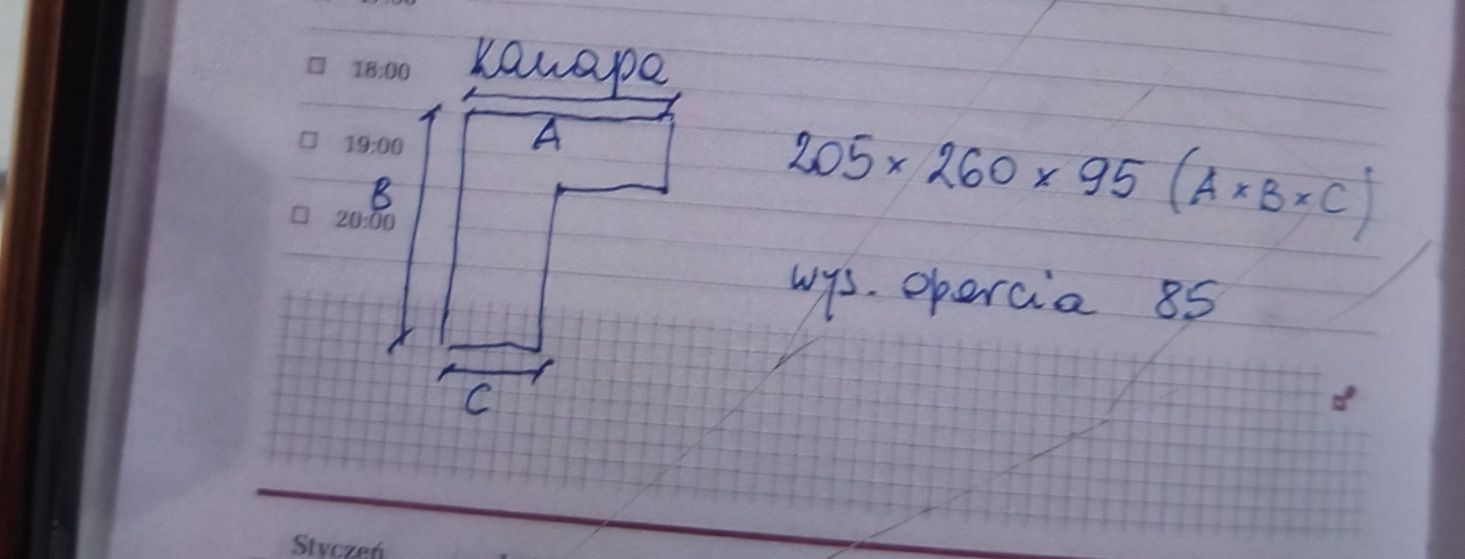 18:00
kanapa
A
19:00
B
20:00
205 x 260 x 95 (A x B x C)
wys. oparcia 85
C
Styczeń